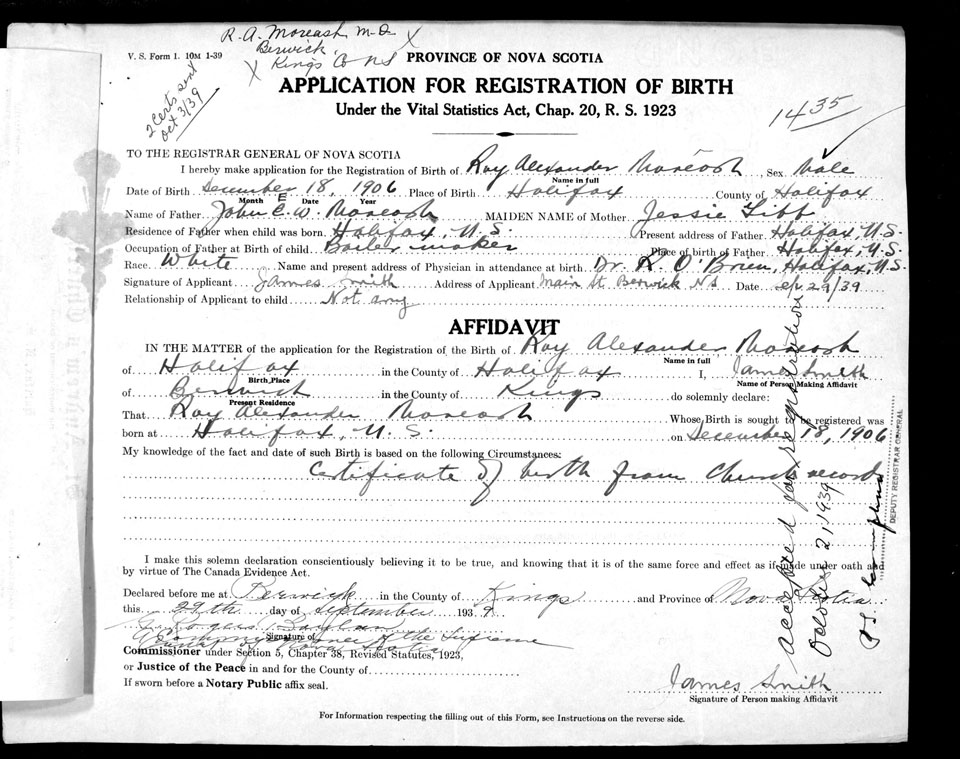 R. A. Moreash M.D.
Berwick
Kings Co NS
V. S. Form 1. 10M 1-39
PROVINCE OF NOVA SCOTIA
APPLICATION FOR REGISTRATION OF BIRTH
Under the Vital Statistics Act, Chap. 20, R. S. 1923
2 Certs sent
Oct 3/39
1435
TO THE REGISTRAR GENERAL OF NOVA SCOTIA
I hereby make application for the Registration of Birth of Roy Alexander Moreash Sex Male
Name in full
Date of Birth December 18, 1906 Place of Birth Halifax County of Halifax
Month Date Year
Name of Father John E. W. Moreash MAIDEN NAME of Mother Jessie
Residence of Father when child was born. Halifax, N.S. Present address of Father Halifax, N.S.
Occupation of Father at Birth of child. Boiler maker Place of birth of Father Halifax, N.S.
Race White Name and present address of Physician in attendance at birth Dr. O'Brien, Halifax, N.S.
Signature of Applicant James Smith Address of Applicant Main St Berwick NS Date Sep 29/39
Relationship of Applicant to child Not any
AFFIDAVIT
IN THE MATTER of the application for the Registration of the Birth of Roy Alexander Moreash
Name in full
of Halifax in the County of Halifax I, James Smith
Birth Place Name of Person Making Affidavit
of Berwick in the County of Kings do solemnly declare:
Present Residence
That Roy Alexander Moreash Whose Birth is sought to be registered was
born at Halifax, N.S. on December 18, 1906
My knowledge of the fact and date of such Birth is based on the following Circumstances:
Certificate of birth from Church records
I make this solemn declaration conscientiously believing it to be true, and knowing that it is of the same force and effect as if made under oath and
by virtue of The Canada Evidence Act.
Declared before me at Berwick in the County of Kings and Province of Nova Scotia
this 29th day of September 1939
Signature of
A Commissioner of the Supreme
Court of Nova Scotia
Commissioner under Section 5, Chapter 38, Revised Statutes, 1923,
or Justice of the Peace in and for the County of
If sworn before a Notary Public affix seal.
James Smith
Signature of Person making Affidavit
For Information respecting the filling out of this Form, see Instructions on the reverse side.
accepted for registration
October 21, 1939
DEPUTY REGISTRAR GENERAL